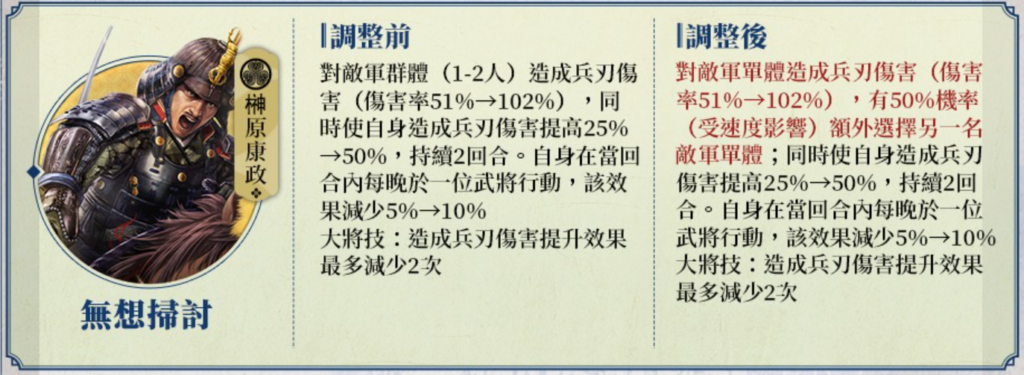 榊原康政
無想掃討
調整前
對敵軍群體（1-2人）造成兵刃傷
害（傷害率51%→102%），同
時使自身造成兵刃傷害提高25%
→50%，持續2回合。自身在當回
合內每晚於一位武將行動，該效
果減少5%→10%
大將技：造成兵刃傷害提升效果
最多減少2次
調整後
對敵軍單體造成兵刃傷害（傷害
率51%→102%），有50%機率
（受速度影響）額外選擇另一名
敵軍單體；同時使自身造成兵刃
傷害提高25%→50%，持續2回
合。自身在當回合內每晚於一位
武將行動，該效果減少5%→10%
大將技：造成兵刃傷害提升效果
最多減少2次